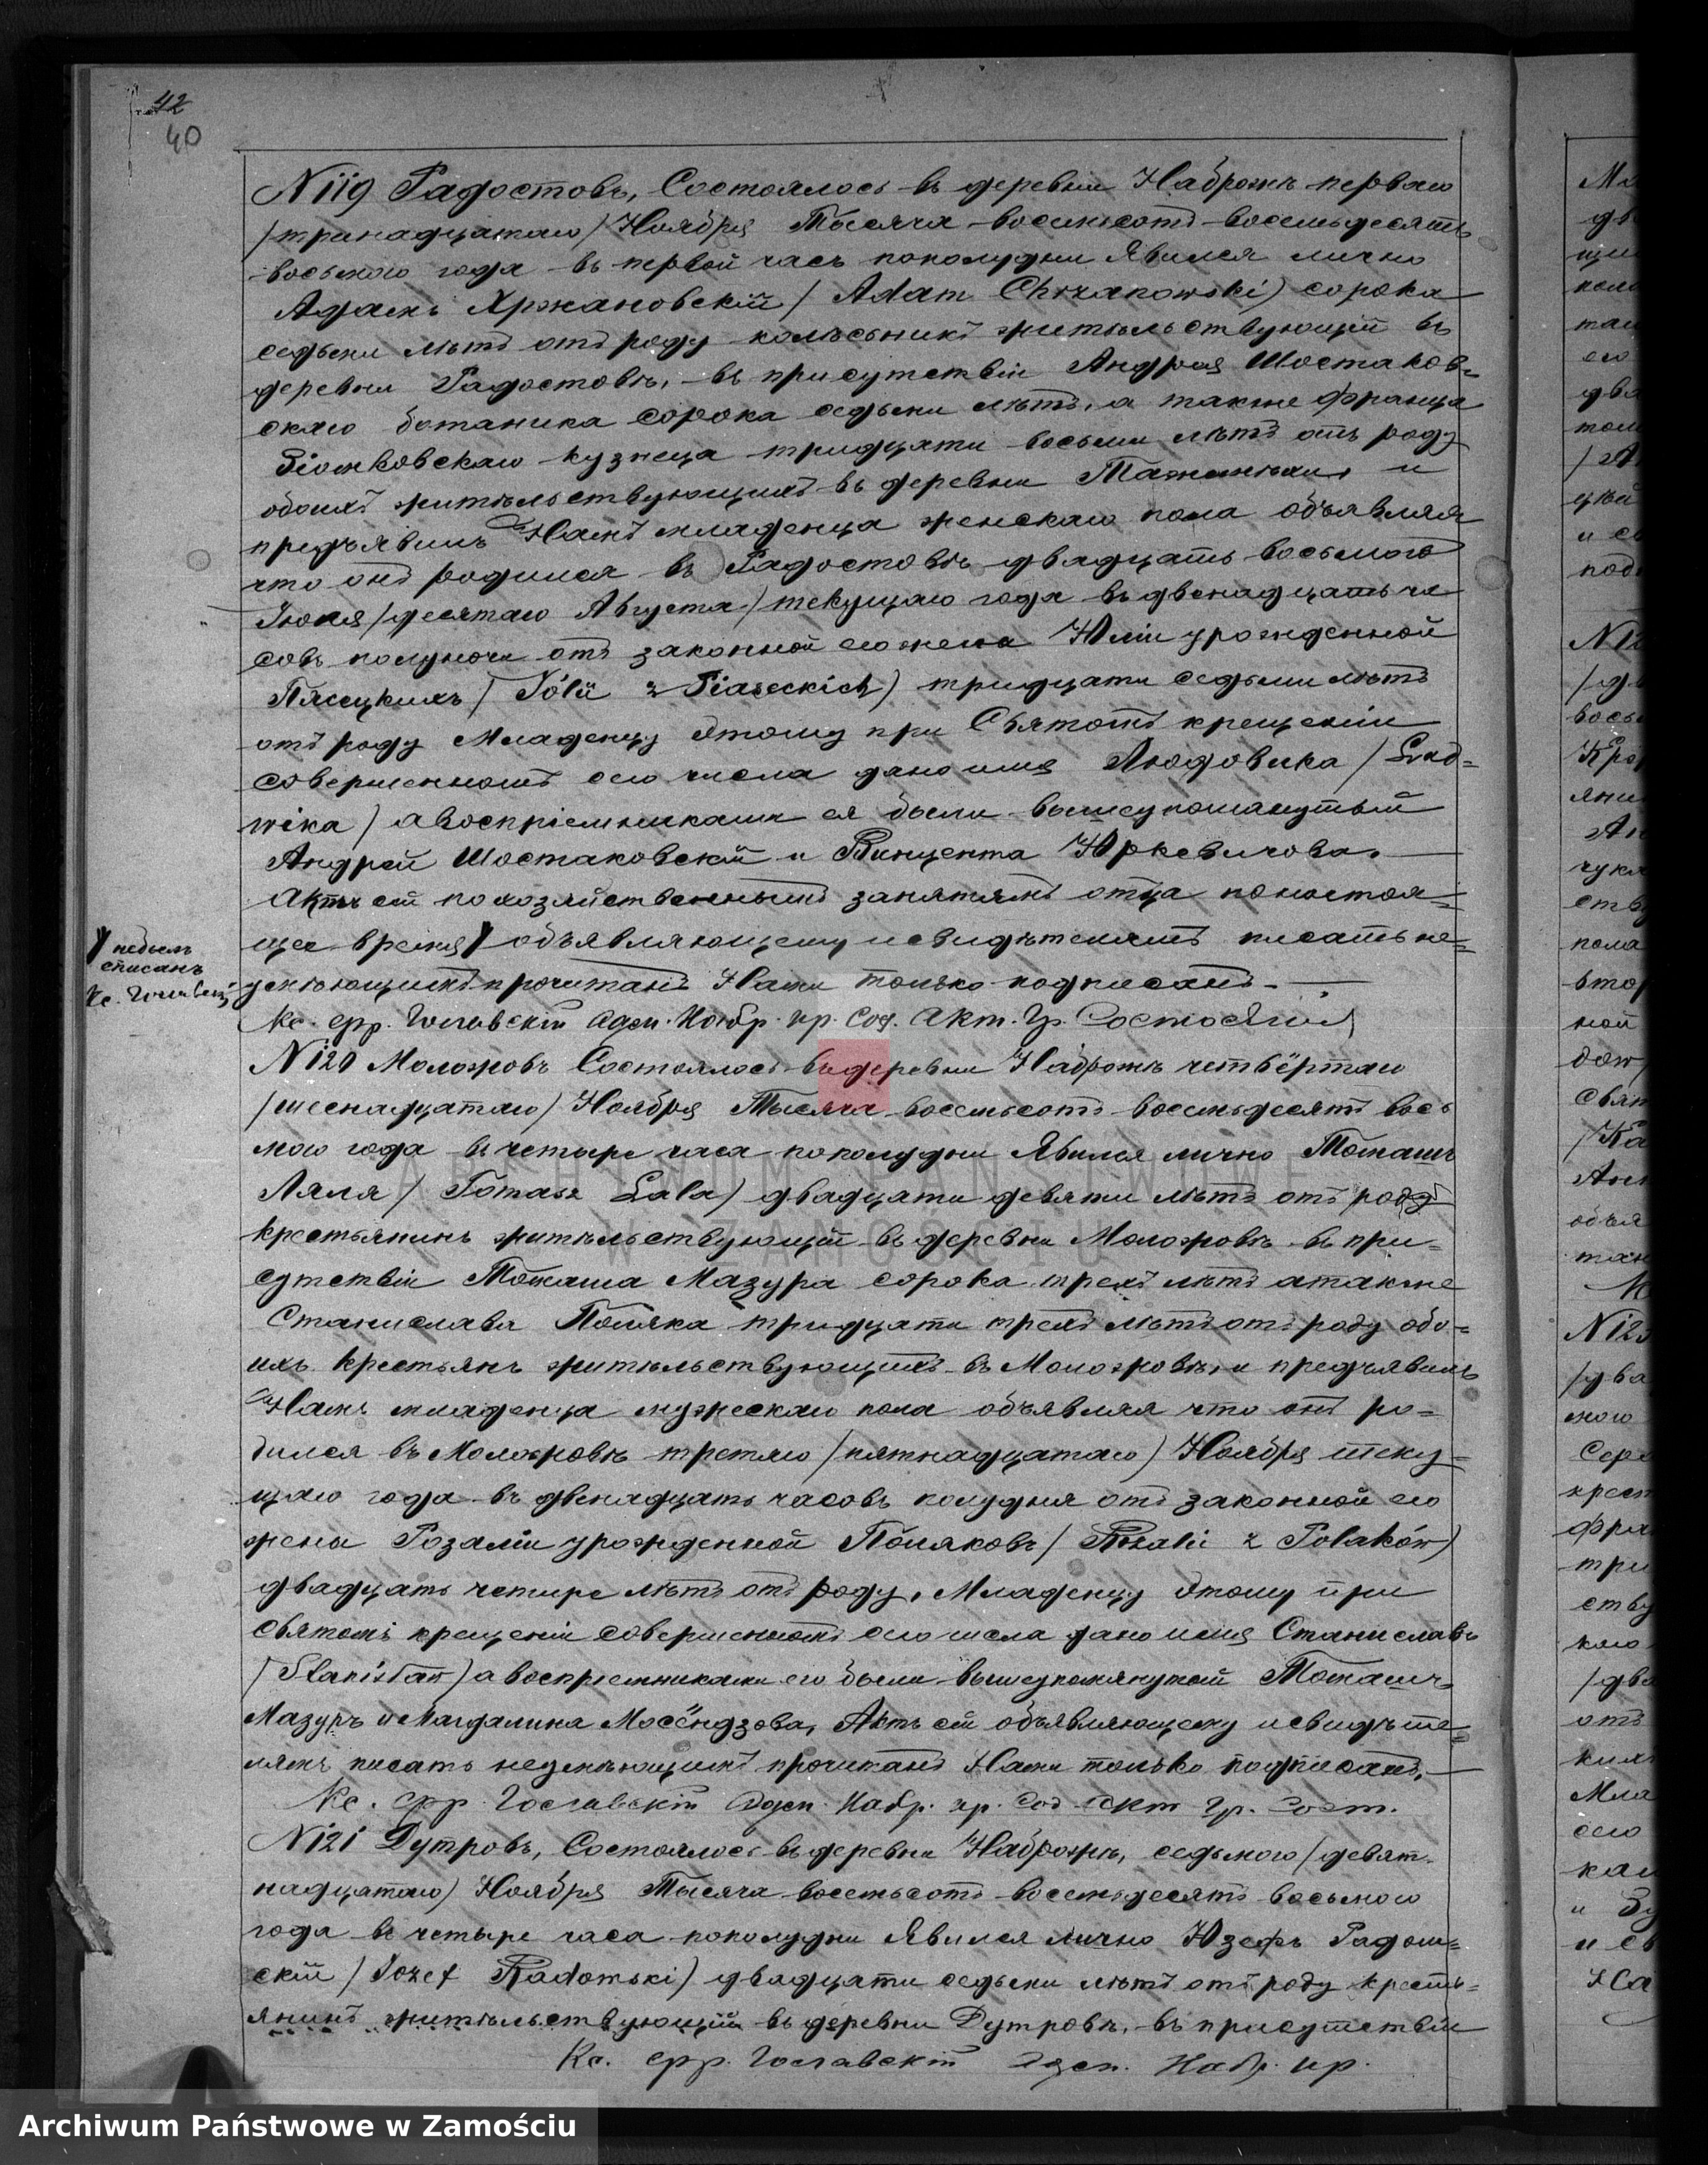 42
40
N 119 Радостовъ, Состоялось въ деревни Наброжъ перваго
/тринадцатаго/ Ноября Тысяча восемьсотъ восемьдесятъ
восьмого года въ первой часъ пополудни Явился лично
Адамъ Хржановскій / Adam Chrzanowski) сорока
седьми лѣтъ отъ роду колесникъ жительствующій въ
деревни Радостовѣ, въ присутствіи Андрея Шостаков-
скаго ботаника сорока седьми лѣтъ, а также Франца
кузнеца тридцати восьми лѣтъ отъ роду
обоихъ жительствующихъ въ деревни и
предъявилъ Намъ младенца женскаго пола объявляя
что онъ родился въ Радостовѣ двадцать восьмого
Іюля /десятаго Августа/ текущаго года въ двенадцать ча
совъ полуночи отъ законной его жены Юліи урожденной
Пясецкихъ / Jólii z Piaseckich) тридцати седьми лѣтъ
отъ роду Младенцу этому при Святомъ крещеніи
совершенномъ сего числа дано имя Людовика / Lud-
wika) а воспріемниками ея были вышеупомянутый
Андрей Шостаковскій и Винцента Юркевичова.
Актъ сей по хозяйственнымъ занятямъ отца по настоя-
щее время объявляющему и свидѣтелямъ писать не-
умѣющимъ прочитанъ Нами только подписанъ.
небылъ
списанъ
Кс. Гославскій
Кс. Фр. Гославскій Адм. Набр. пр. Сод. Акт. Гр. Состоянія
N 120 Моложовъ Состоялось въ деревни Наброжъ четвёртаго
/шеснадцатаго/ Ноября Тысяча восемьсотъ восемьдесятъ вось
мого года въ четыре часа пополудни Явился лично Томашъ
Ляля / Tomasz Lala) двадцати девяти лѣтъ отъ роду
крестьянинъ жительствующій въ деревни Моложовъ въ при-
сутствіи Томаша Мазура сорока трехъ лѣтъ а также
Станислава Поляка тридцати трехъ лѣтъ отъ роду обо-
ихъ крестьянъ жительствующихъ въ Моложовѣ, и предъявилъ
Намъ младенца мужескаго пола объявляя что онъ ро-
дился въ Моложовѣ третяго /пятнадцатаго/ Ноября теку-
щаго года въ двенадцать часовъ полудня отъ законной его
жены Розаліи урожденной Поляковъ / Rozalii z Polaków)
двадцать четыре лѣтъ отъ роду, Младенцу этому при
Святомъ крещеніи совершенномъ сего числа дано имя Станиславъ
/ Stanisław) а воспріемниками его были вышеупомянутый Томашъ
Мазуръ и Магдалина Мосёндзова, Актъ сей объявляющему и свидѣте-
лямъ писать неумѣющимъ прочитанъ Нами только подписанъ,
Кс. Фр. Гославскій Адм. Набр. пр. Сод. Акт. Гр. Сост.
N 121 Дутровъ, Состоялось въ деревни Наброжъ, седьмого /девят
надцатаго/ Ноября Тысяча восемьсотъ восемьдесятъ восьмого
года въ четыре часа пополудни Явился лично Юзефъ Радом-
скій / Józef Radomski) двадцати седьми лѣтъ отъ роду кресть-
янинъ жительствующій въ деревни Дутровъ, въ присутствіи
Кс. Фр. Гославскій Адм. Набр. пр.
ARCHIWUM PAŃSTWOWE
W ZAMOŚCIU
Archiwum Państwowe w Zamościu